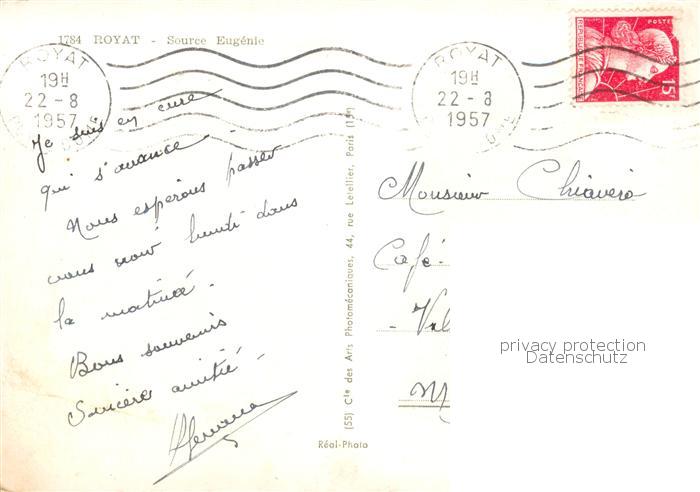 1784 ROYAT - Source Eugénie
ROYAT
19H
22-8
1957
ROYAT
19H
22-8
1957
POSTES
15F
Je suis en cure
qui s'avance.
Nous espérons passer
vous voir lundi dans
la matinée.
Bons souvenirs
Sincère amitié -
(55) Cie des Arts Photomécaniques, 44, rue Letellier, Paris (15e)
Réal-Photo
Monsieur Chiavero
Café -
privacy protection
Datenschutz